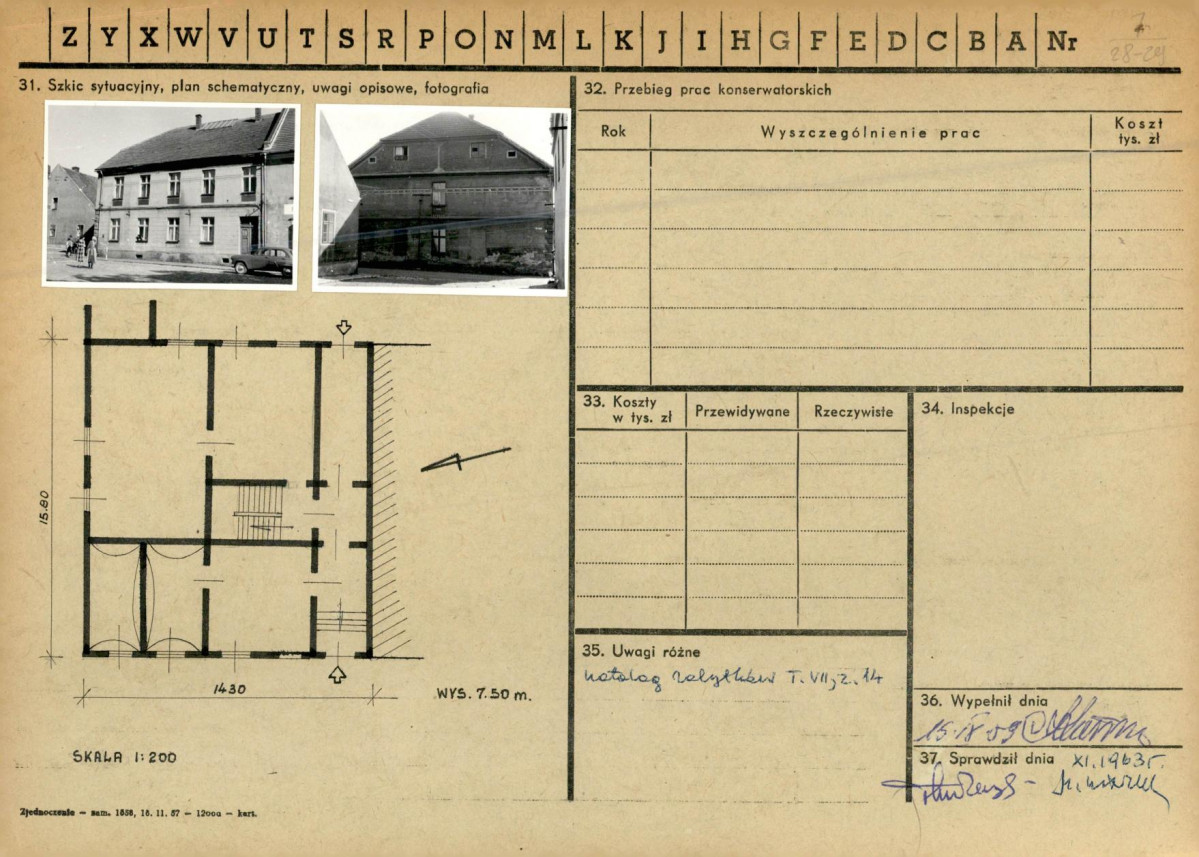 Z Y X W V U T S R P O N M L K J I H G F E D C B A Nr
28-29
31. Szkic sytuacyjny, plan schematyczny, uwagi opisowe, fotografia
32. Przebieg prac konserwatorskich
Rok
Wyszczególnienie prac
Koszt
tys. zł
15.80
1430
WYS. 7.50 m.
SKALA 1:200
33. Koszty
w tys. zł
Przewidywane
Rzeczywiste
34. Inspekcje
35. Uwagi różne
katalog zabytków T. VII, z. 14
36. Wypełnił dnia
15.IX.59
37. Sprawdził dnia XI.1963r.
Zjednoczenie — zam. 1858, 18. 11. 57 — 12000 — kart.